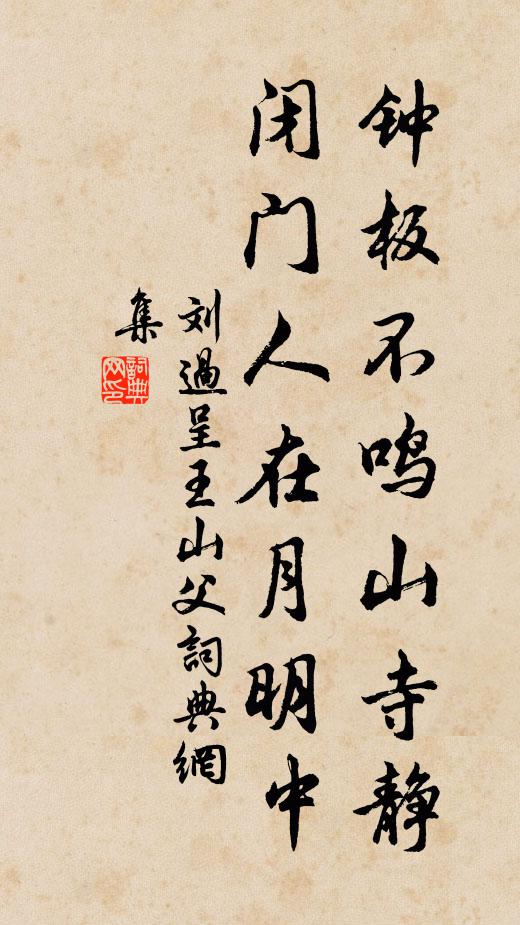 钟板不鸣山寺静
闭门人在月明中
刘過呈王山父詞典網
集
詞典网印